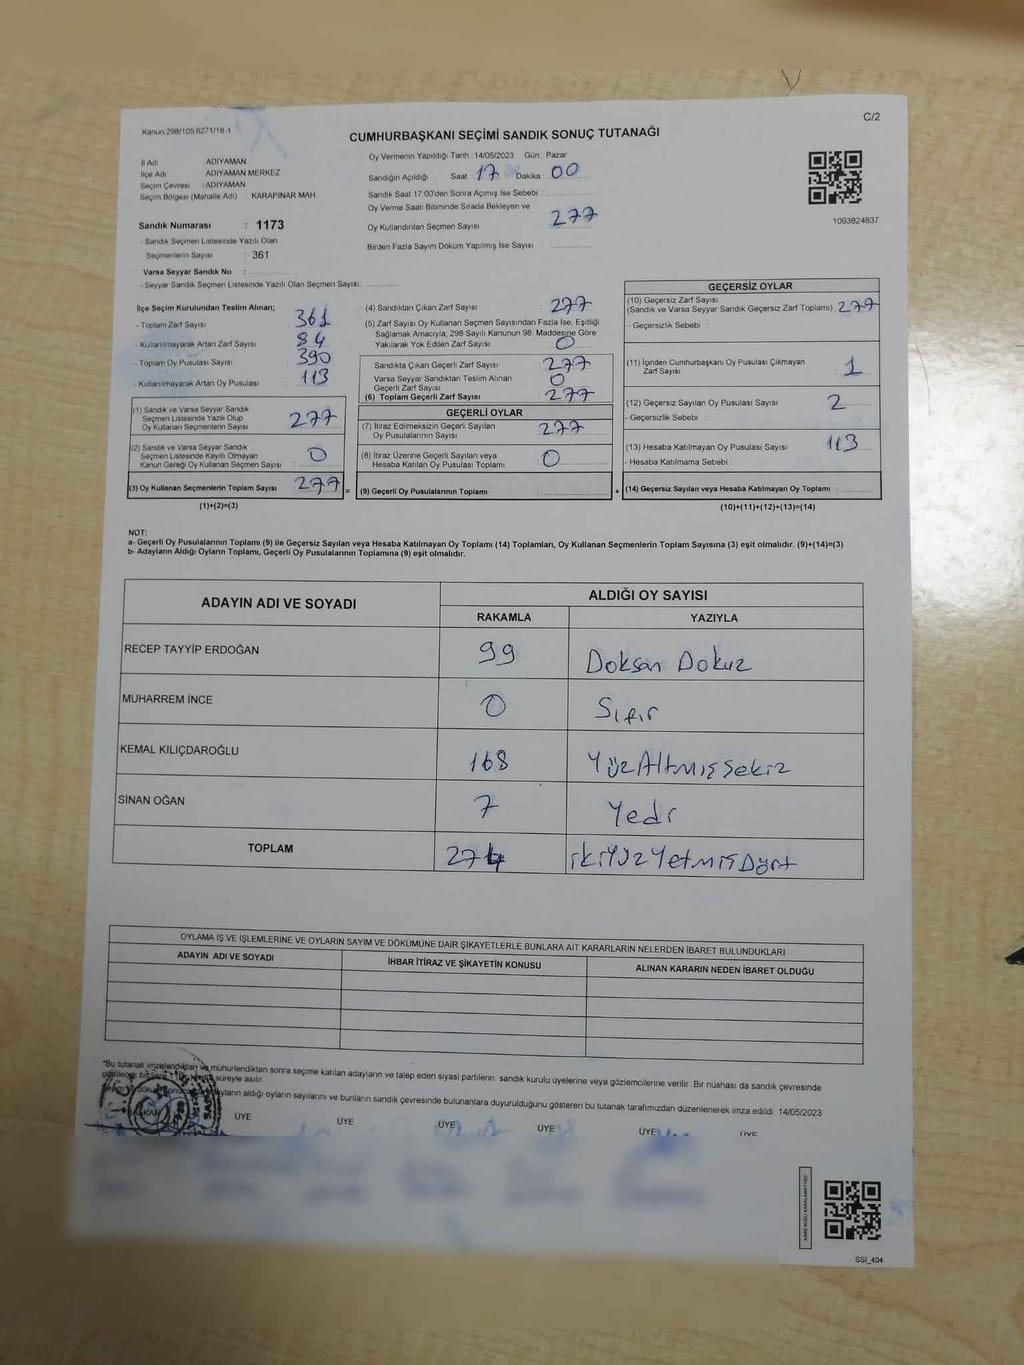 C/2
Kanun 298/105,6271/16-1
CUMHURBAŞKANI SEÇİMİ SANDIK SONUÇ TUTANAĞI
İl Adı ADIYAMAN
İlçe Adı ADIYAMAN MERKEZ
Seçim Çevresi : ADIYAMAN
Seçim Bölgesi (Mahalle Adı) KARAPINAR MAH
Sandık Numarası : 1173
- Sandık Seçmen Listesinde Yazılı Olan
Seçmenlerin Sayısı : 361
Varsa Seyyar Sandık No :
- Seyyar Sandık Seçmen Listesinde Yazılı Olan Seçmen Sayısı:
Oy Vermenin Yapıldığı Tarih :14/05/2023 Gün : Pazar
Sandığın Açıldığı Saat : 17 Dakika : 00
Sandık Saat 17.00'den Sonra Açmış İse Sebebi :
Oy Verme Saati Bitiminde Sırada Bekleyen ve
Oy Kullandırılan Seçmen Sayısı : 277
Birden Fazla Sayım Döküm Yapılmış İse Sayısı :
1093824637
İlçe Seçim Kurulundan Teslim Alınan;
- Toplam Zarf Sayısı : 361
- Kullanılmayarak Artan Zarf Sayısı : 84
- Toplam Oy Pusulası Sayısı : 390
- Kullanılmayarak Artan Oy Pusulası : 113
(1) Sandık ve Varsa Seyyar Sandık
Seçmen Listesinde Yazılı Olup
Oy Kullanan Seçmenlerin Sayısı : 277
(2) Sandık ve Varsa Seyyar Sandık
Seçmen Listesinde Kayıtlı Olmayan
Kanun Gereği Oy Kullanan Seçmen Sayısı : 0
(3) Oy Kullanan Seçmenlerin Toplam Sayısı : 277 =
(1)+(2)=(3)
(4) Sandıktan Çıkan Zarf Sayısı : 277
(5) Zarf Sayısı Oy Kullanan Seçmen Sayısından Fazla İse, Eşitliği
Sağlamak Amacıyla, 298 Sayılı Kanunun 98. Maddesine Göre
Yakılarak Yok Edilen Zarf Sayısı : 0
Sandıkta Çıkan Geçerli Zarf Sayısı : 277
Varsa Seyyar Sandıktan Teslim Alınan
Geçerli Zarf Sayısı : 0
(6) Toplam Geçerli Zarf Sayısı : 277
GEÇERLİ OYLAR
(7) İtiraz Edilmeksizin Geçerli Sayılan
Oy Pusulalarının Sayısı : 277
(8) İtiraz Üzerine Geçerli Sayılan veya
Hesaba Katılan Oy Pusulası Toplamı : 0
(9) Geçerli Oy Pusulalarının Toplamı : +
GEÇERSİZ OYLAR
(10) Geçersiz Zarf Sayısı
(Sandık ve Varsa Seyyar Sandık Geçersiz Zarf Toplamı) : 277
- Geçersizlik Sebebi :
(11) İçinden Cumhurbaşkanı Oy Pusulası Çıkmayan
Zarf Sayısı : 1
(12) Geçersiz Sayılan Oy Pusulası Sayısı : 2
- Geçersizlik Sebebi :
(13) Hesaba Katılmayan Oy Pusulası Sayısı : 113
- Hesaba Katılmama Sebebi :
(14) Geçersiz Sayılan veya Hesaba Katılmayan Oy Toplamı :
(10)+(11)+(12)+(13)=(14)
NOT:
a- Geçerli Oy Pusulalarının Toplamı (9) ile Geçersiz Sayılan veya Hesaba Katılmayan Oy Toplamı (14) Toplamları, Oy Kullanan Seçmenlerin Toplam Sayısına (3) eşit olmalıdır. (9)+(14)=(3)
b- Adayların Aldığı Oyların Toplamı, Geçerli Oy Pusulalarının Toplamına (9) eşit olmalıdır.
ADAYIN ADI VE SOYADI
ALDIĞI OY SAYISI
RAKAMLA YAZIYLA
RECEP TAYYİP ERDOĞAN 99 Doksan Dokuz
MUHARREM İNCE 0 Sıfır
KEMAL KILIÇDAROĞLU 168 YüzAltmışSekiz
SİNAN OĞAN 7 Yedi
TOPLAM 274 ikiYüzYetmişDört
OYLAMA İŞ VE İŞLEMLERİNE VE OYLARIN SAYIM VE DÖKÜMÜNE DAİR ŞİKAYETLERLE BUNLARA AİT KARARLARIN NELERDEN İBARET BULUNDUKLARI
ADAYIN ADI VE SOYADI İHBAR İTİRAZ VE ŞİKAYETİN KONUSU ALINAN KARARIN NEDEN İBARET OLDUĞU
*Bu tutanak imzalandıktan ve mühürlendikten sonra seçime katılan adayların ve talep eden siyasi partilerin sandık kurulu üyelerine veya gözlemcilerine verilir. Bir nüshası da sandık çevresinde
süreyle asılır.
aldığı oyların sayılarını ve bunların sandık çevresinde bulunanlara duyurulduğunu gösteren bu tutanak tarafımızdan düzenlenerek imza edildi. 14/05/2023
BAŞKAN ÜYE ÜYE ÜYE ÜYE ÜYE ÜYE
SSI_404